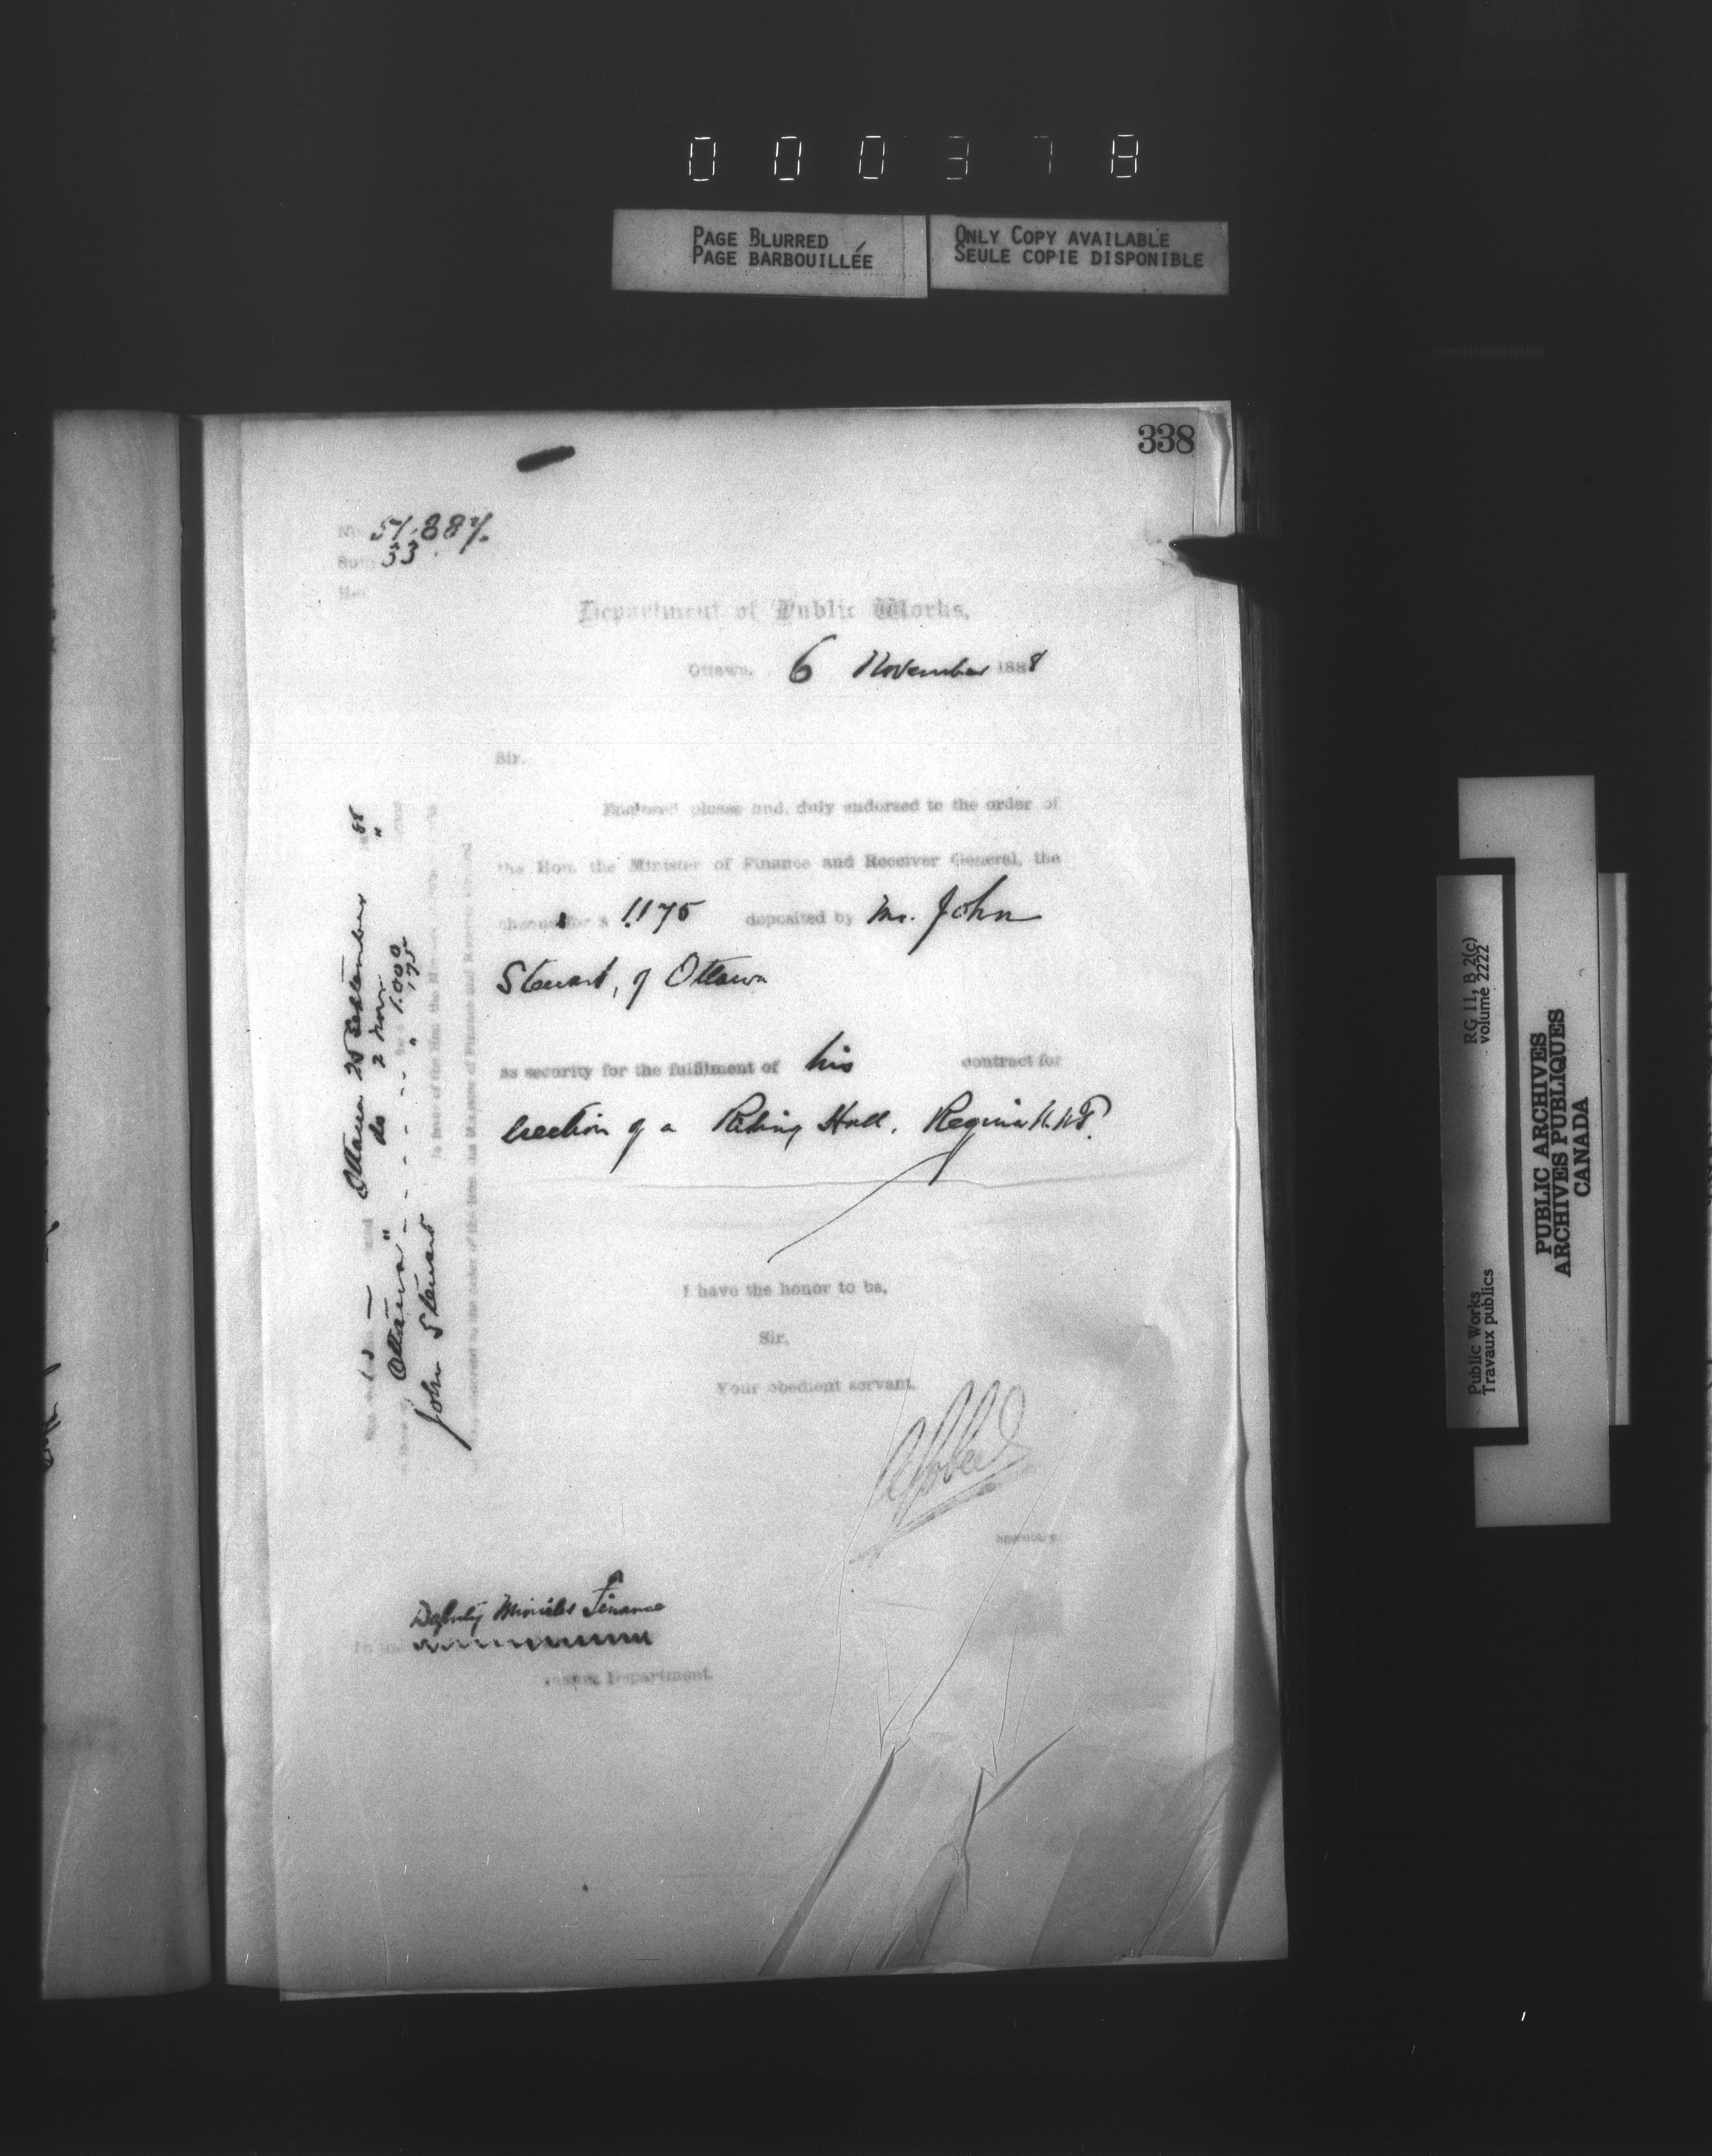 000378
PAGE BLURRED
PAGE BARBOUILLÉE
ONLY COPY AVAILABLE
SEULE COPIE DISPONIBLE
338
No. 51.887.
Sub. 33
Department of Public Works,
Ottawa, 6 November 1888
Sir,
Enclosed please find, duly endorsed to the order of
the Hon. the Minister of Finance and Receiver General, the
cheques for $ 1175 deposited by Mr. John
Stewart, of Ottawa
as security for the fulfilment of his contract for
erection of a Riding Hall, Regina N.W.T.
I have the honor to be,
Sir,
Your obedient servant,
Secretary
Deputy Minister Finance
Department.
Ottawa 25 September 88
do 2 Nov. "
Ottawa " 1.000
" 175
John Stewart
in favor of the Hon. the Minister
the order of the Hon. the Minister of Finance and Receiver General
RG 11, B 2(c)
volume 2222
Public Works
Travaux publics
PUBLIC ARCHIVES
ARCHIVES PUBLIQUES
CANADA